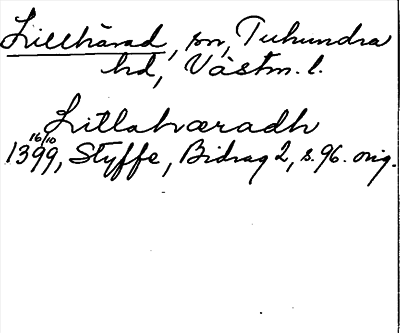 Lillhärad, sn, Tuhundra
hd, Västm. l.
Litlahæradh
16/10
1399, Styffe, Bidrag 2, s. 96. orig.